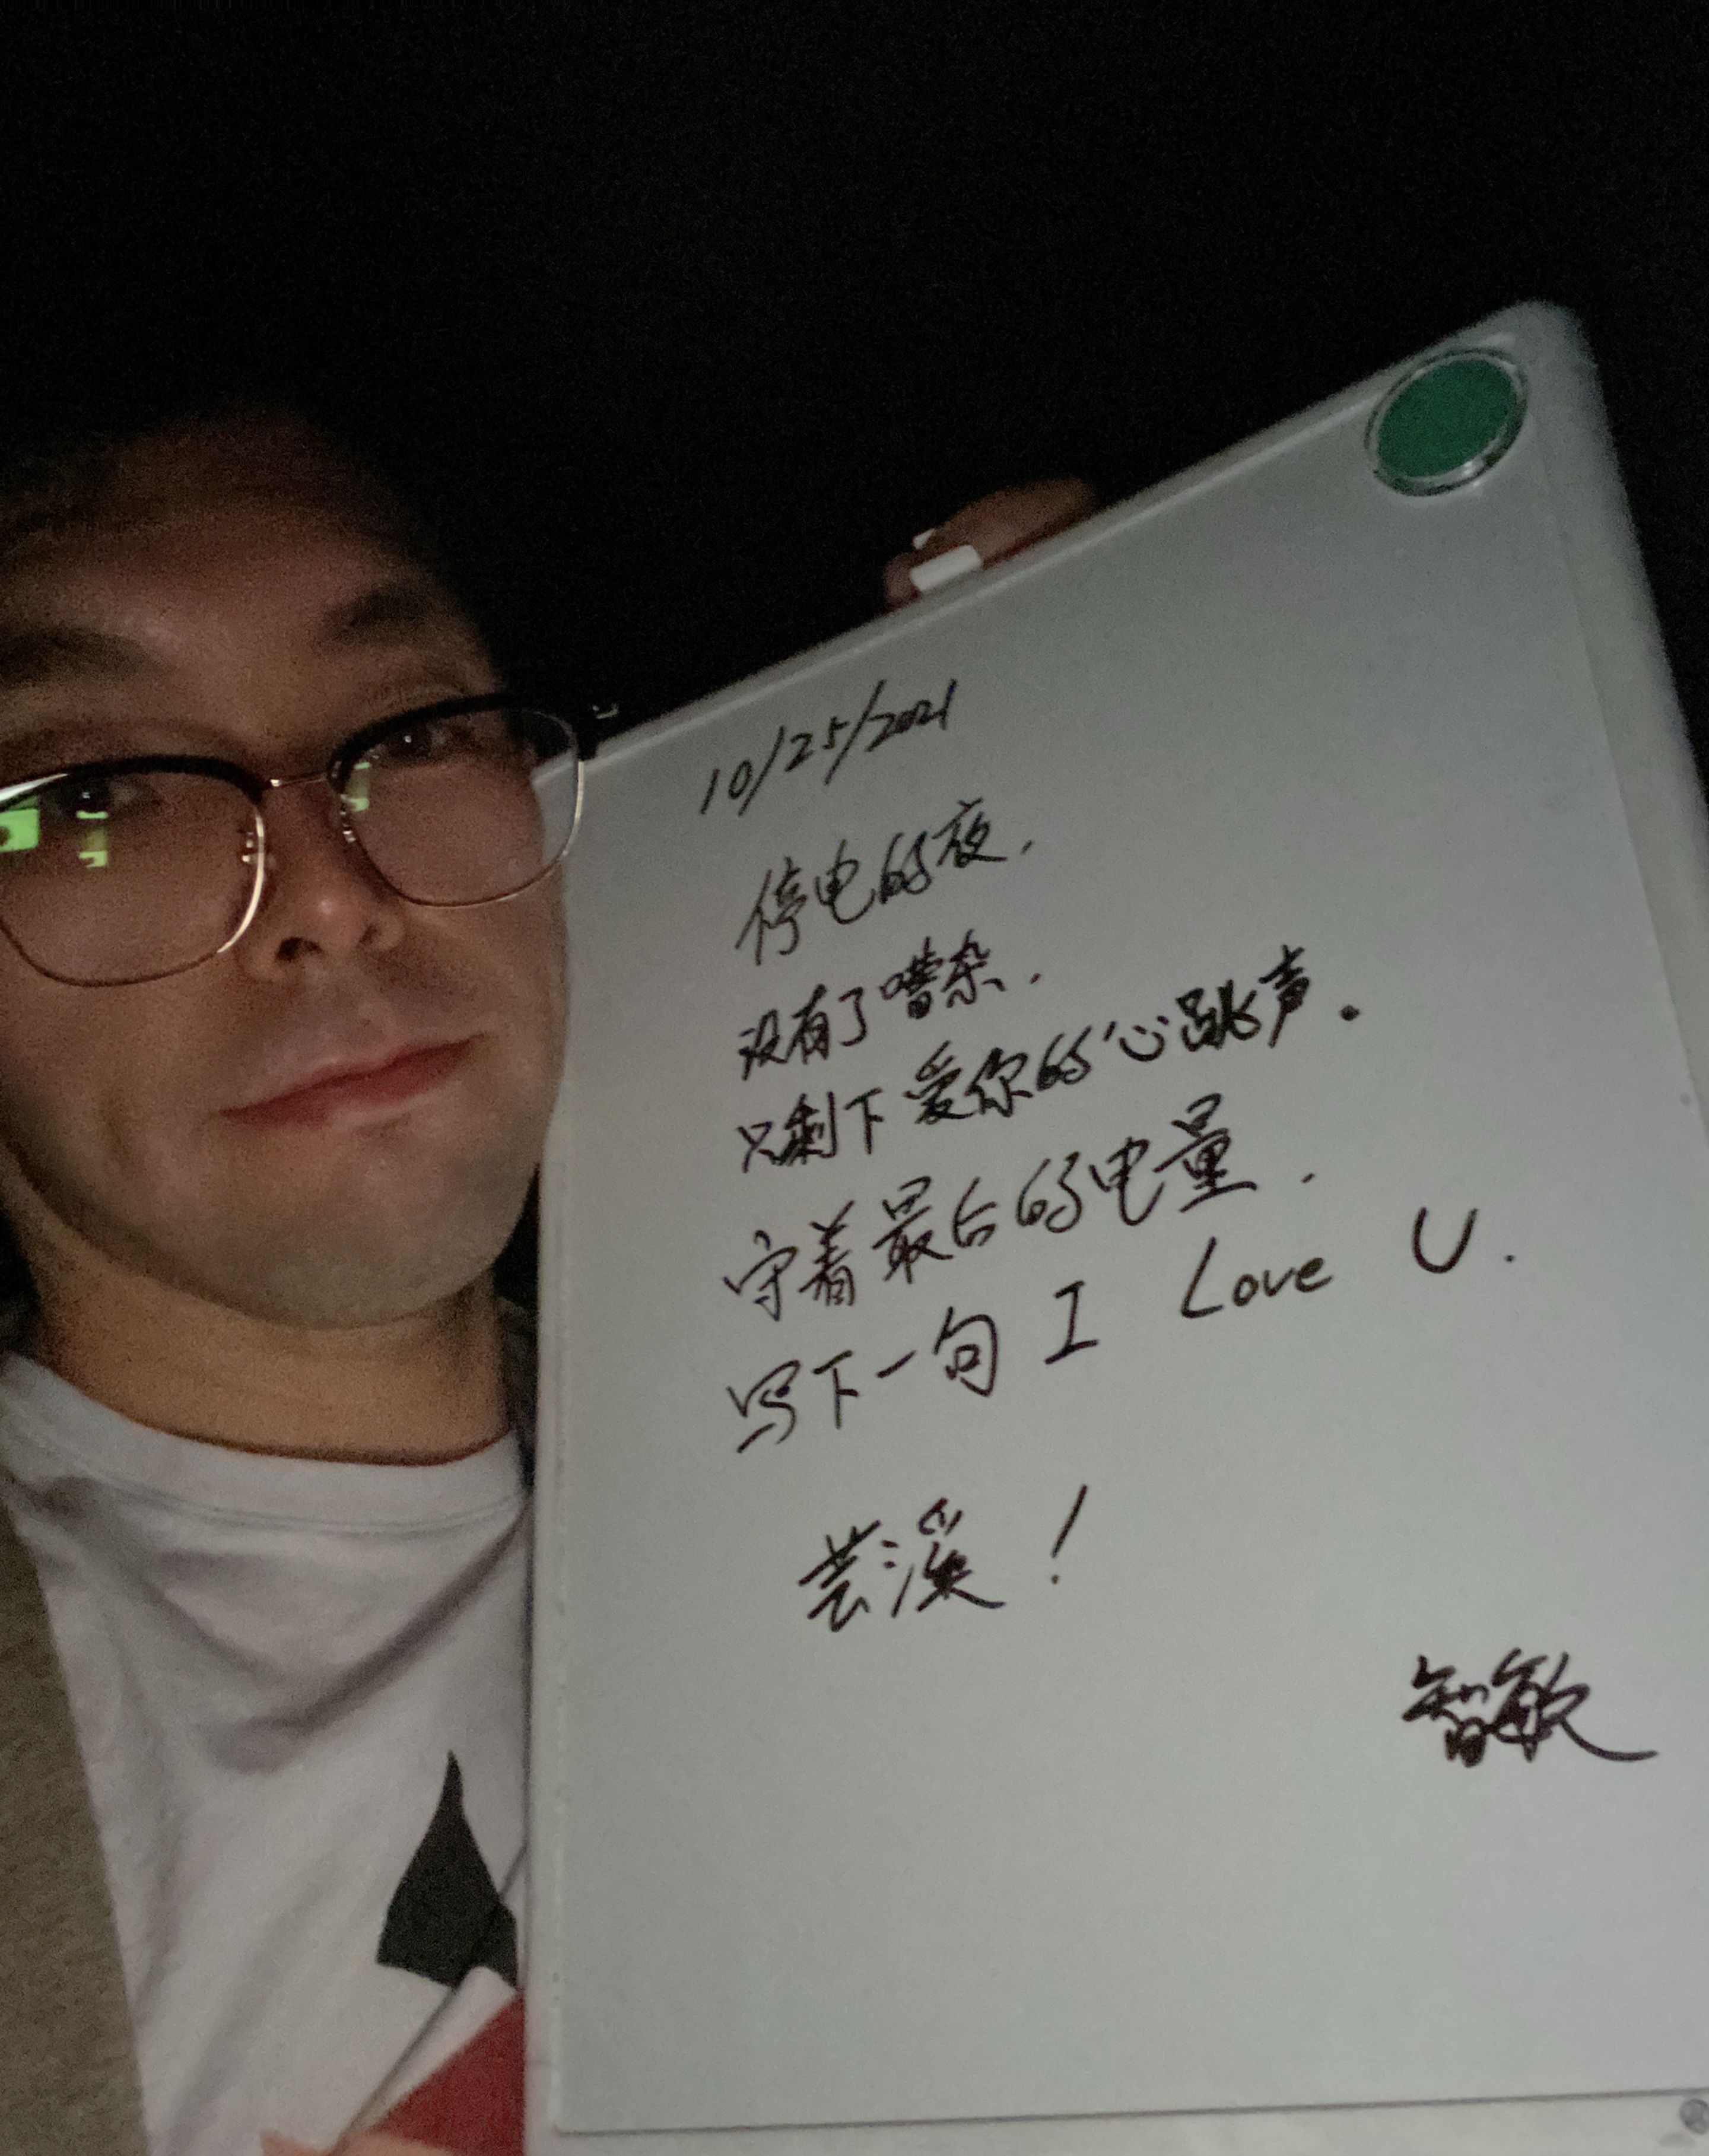 10/25/2021
停电的夜.
没有了嘈杂.
只剩下爱你的心跳声.
守着最后的电量.
写下一句 I Love U.
芸溪!
智敏